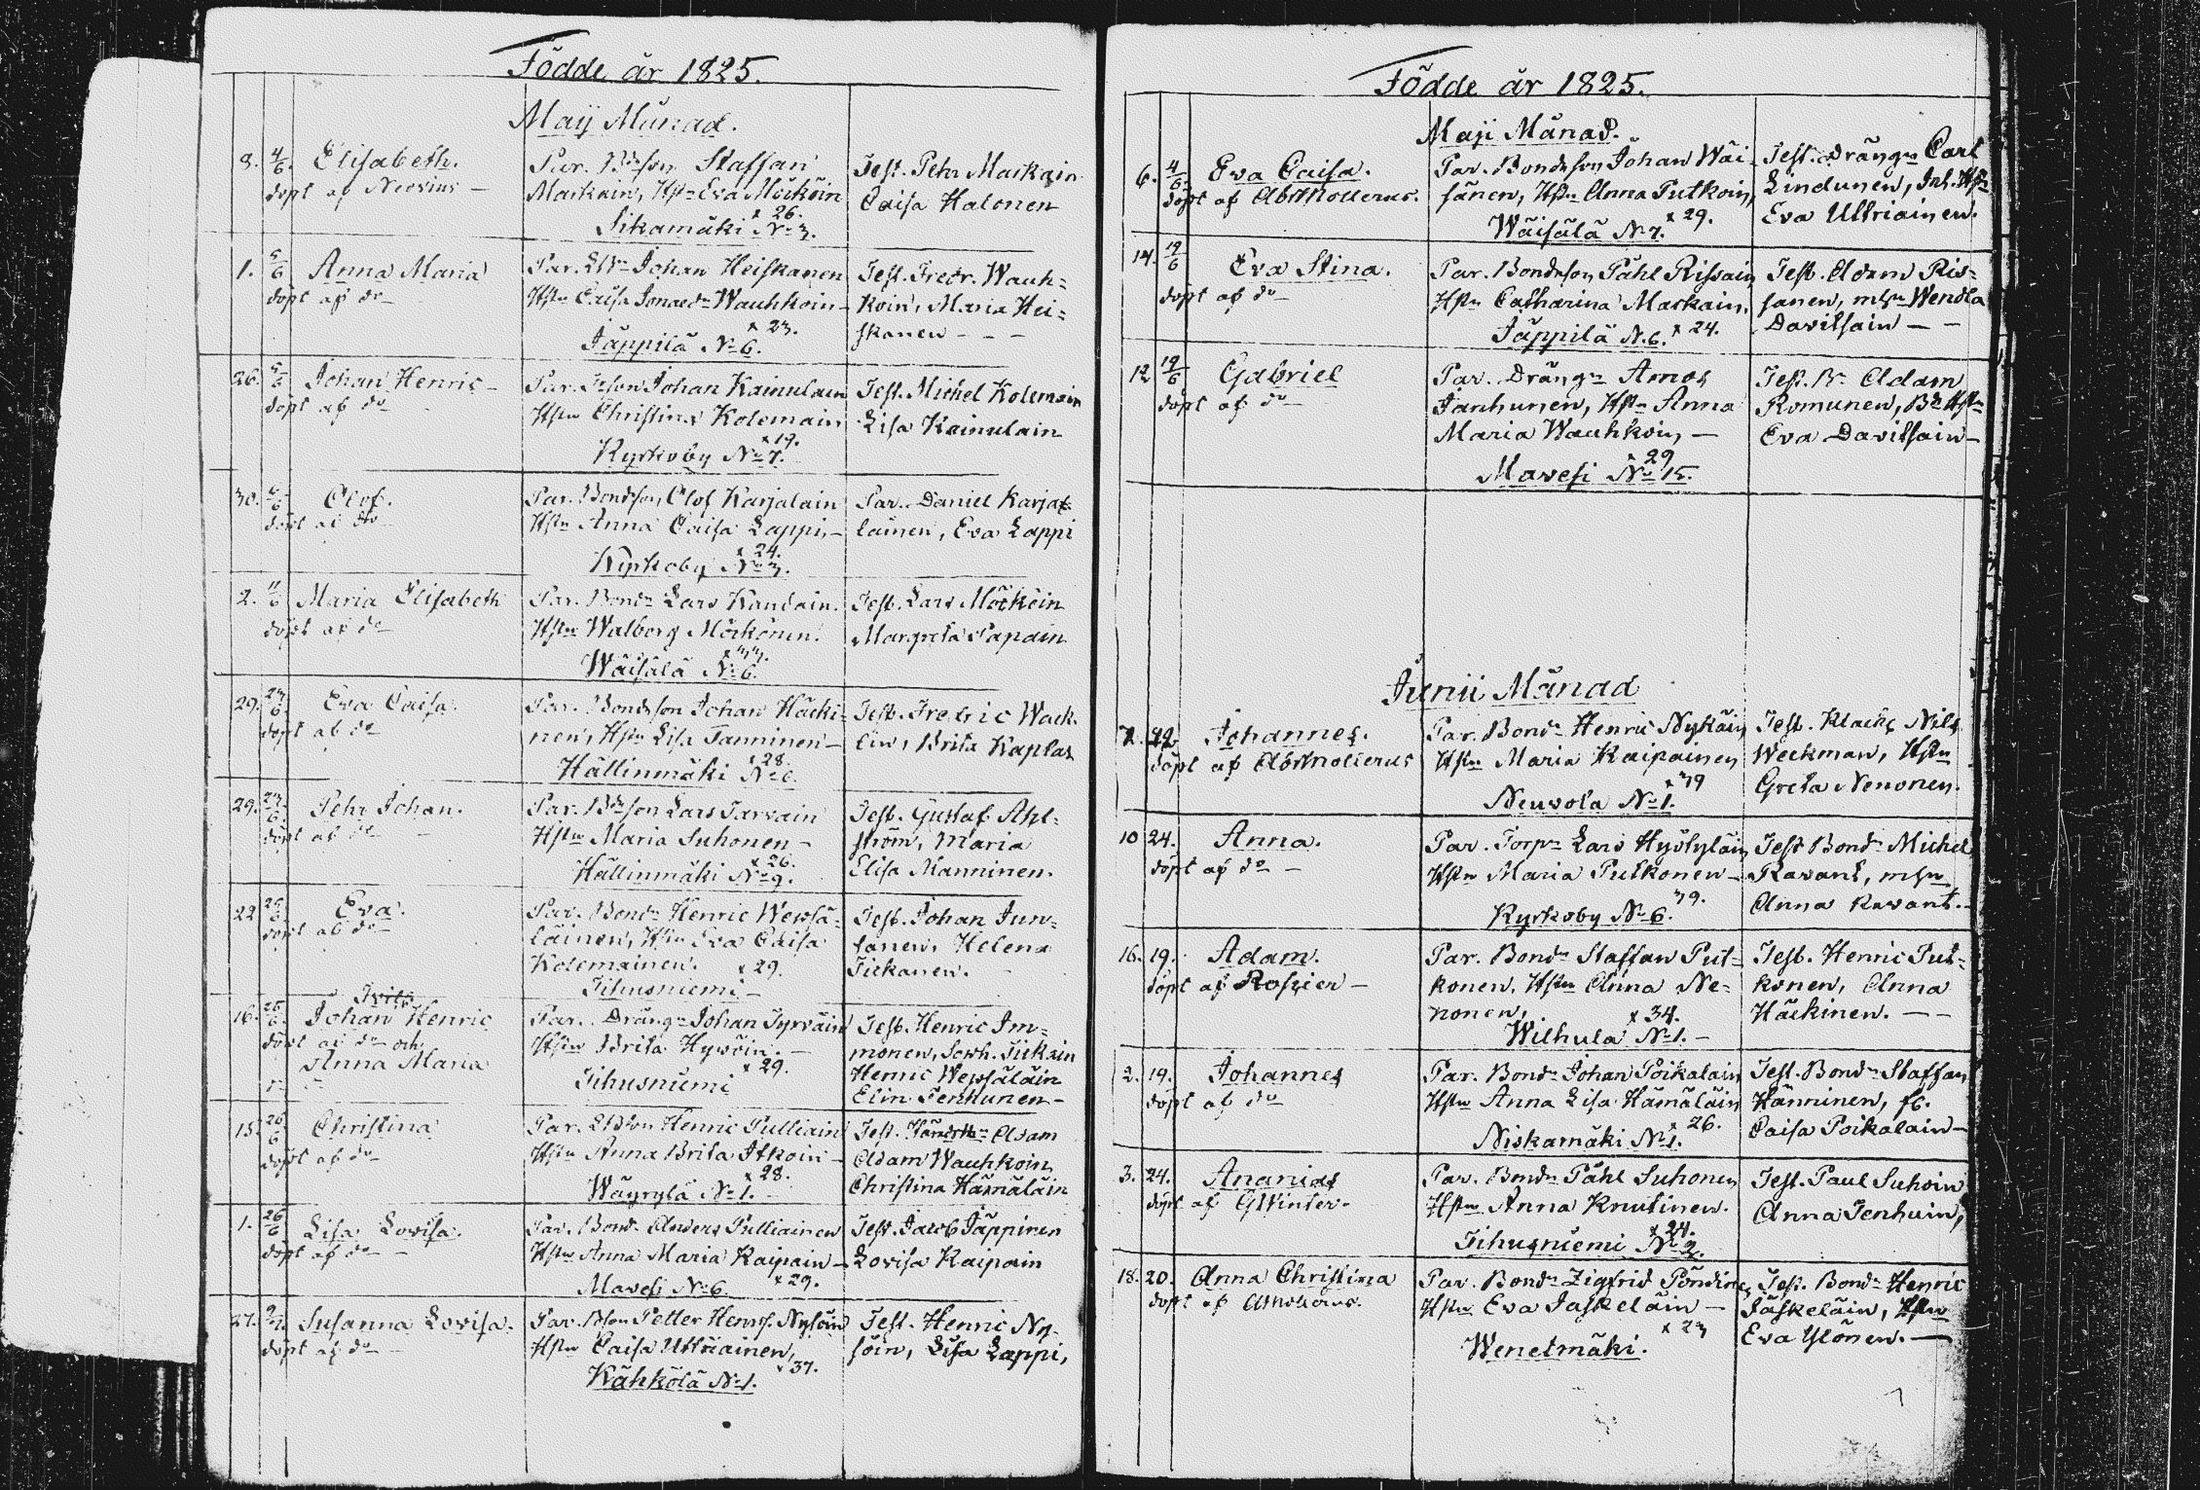 Födde år 1825.
Maij Månad.
8. 4/6. Elisabeth.
döpt af Neovius —
Par. Bdeson Staffan
Markain, Hstn Eva Möcköin
x 26.
Sikamäki No 3.
Test. Pehr Markain
Caisa Halonen
1. 5/6 Anna Maria
döpt af do
Par. Johan Heiskanen
Hstn Caisa Jonaedr Wauhkoin
x 23.
Jäppilä No 6.
Test. Fredr. Wauh=
koin, Maria Hei=
skanen — — —
26. 5/6 Johan Henric —
döpt af do
Par. Johan Kainulain
Hstn Christina Kolemain
x 19.
Kyrkoby No 7.
Test. Michel Kolemain
Lisa Kainulain
30. 6/6 Olof.
döpt af do
Par. Bondeson Olof Karjalain
Hstn Anna Caisa Lappi —
x 24.
Kyrkoby No 3.
Par. Daniel Karja=
lainen, Eva Lappi
2. 11/6 Maria Elisabeth
döpt af do
Par. Bondn Lars Kandain.
Hstn Walborg Möckönen.
x 33.
Wäisälä No 6.
Test. Lars Möcköin
Margreta Papain
29. 23/6 Eva Caisa.
döpt af do
Par. Bondeson Johan Häcki=
nen, Hstn Lisa Tanninen —
x 28.
Hällinmäki No
Test. Fredric Wack=
lin, Brita Kaplas
29. 23/6 Pehr Johan.
döpt af do —
Par. Bdeson Lars Tarvain
Hstn Maria Suhonen —
x 26.
Hällinmäki No 9.
Test. Gustaf Ahl=
ström, Maria
Elisa Manninen.
22 25/6 Eva.
döpt af do
Par. Bondn Henric Wepsä=
läinen, Hstn Eva Caisa
Kolemainen. x 29.
Tihusniemi —
Test. Johan Jun=
tanen, Helena
Tickanen.
16. 25/6. Johan Henric
döpt af do och
Anna Maria
Par. Drängn Johan Tyrväin
Hstn Brita Hyvöin. —
x 29.
Tihusniemi
Test. Henric Im=
monen, Tickain
Henric Wepsäläin
Elin Tenhunen —
15. 26/6 Christina
döpt af do
Par. Henric Pulliain
Hstn Anna Brita Itkoin —
x 28.
Wäyrylä No 1.
Test. Adam
Adam Wauhkoin
Christina Hämäläin
1. 26/6 Lisa Lovisa.
döpt af do —
Par. Bond. Anders Pulliainen
Hstn Anna Maria Kaipain —
x 29.
Mavesi No 6.
Test. Jacob Jäppinen
Lovisa Kaipain
27. Susanna Lovisa.
döpt af do —
Par. Petter Henrs. Nysöin
Hstn Caisa Uttriainen,
x 37.
Kähkölä No 1.
Test. Henric Ny=
söin, Lisa Lappi,
Födde år 1825.
Maji Månad.
6. 4/6. Eva Caisa.
döpt af Abr Molierus.
Par. Bondeson Johan Wäi=
sänen, Hstn Anna Putkoin,
x 29.
Wäisälä No 7.
Test. Drängn Carl
Lindunen, Inh. Hstn
Eva Uttriainen.
14. 19/6 Eva Stina.
döpt af do
Par. Bondeson Påhl Rissain
Hstn Catharina Markain.
Jäppilä No 6. x 24.
Test. Adam Ris=
sanen, Wendla
Davitsain — —
12 19/6 Gabriel
döpt af do
Par. Drängn Amos
Janhunen, Hstn Anna
Maria Wauhkoin —
x 29
Mavesi No 15.
Test. Bn Adam
Romunen, Bd Hstn
Eva Davitsain —
Junii Månad
7. 22. Johannes.
döpt af Abr Molierus
Par. Bondn Henric Nykäin
Hstn Maria Kaipainen
x 39
Neuvola No 1.
Test. Klack. Nils
Weckman, Hstn
Greta Nenonen.
10 24. Anna.
döpt af do —
Par. Torpn Lars Hyötyläin
Hstn Maria Putkonen —
39.
Kyrkoby No 6.
Test Bondn Michel
Ravant,
Anna Ravant. —
16. 19. Adam.
döpt af Roszien —
Par. Bondn Staffan Put=
konen, Hstn Anna Ne=
nonen,
x 34.
Wilhula No 1. —
Test. Henric Put=
konen, Anna
Häckinen. — —
2. 19. Johannes
döpt af do
Par. Bondn Johan Poikalain
Hstn Anna Lisa Hämäläin
x 26.
Niskamäki No 1.
Test. Bondn Staffan
Hänninen,
Caisa Poikalain —
3. 24. Ananias
döpt af GWinter.
Par. Bondn Påhl Suhonen
Hstn Anna Knutinen.
x 24.
Tihusniemi No 2.
Test. Paul Suhoin
Anna Tenhuin,
18. 20. Anna Christina
döpt af
Par. Bondn Zigfrid Pöndinen
Hstn Eva Jaskeläin —
x 23
Wenetmäki.
Test. Bondn Henric
Jäskeläin, Hstn
Eva Ylönen. —